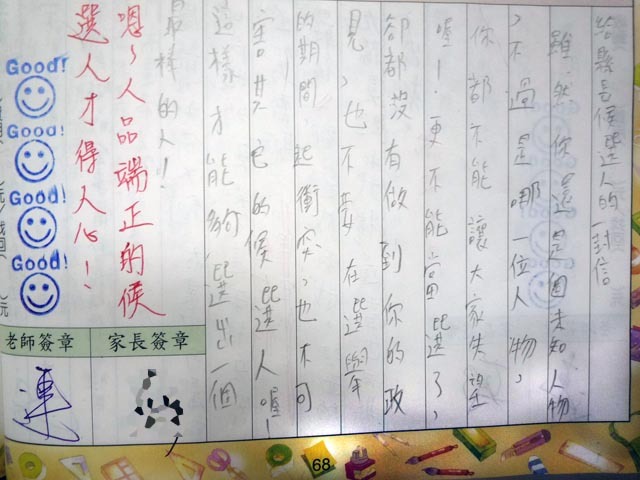 給縣長候選人的一封信
雖然你還是個未知人物
，不過是哪一位人物，
你都不能讓大家失望
喔！更不能當選了，
卻都沒有做到你的政
見，也不要在選舉
的期間起衝突，也不可
害其它的候選人喔！
這樣才能夠選出一個
最棒的人！
嗯～人品端正的候
選人才得人心！
Good!
Good!
Good!
Good!
家長簽章
老師簽章
連
68